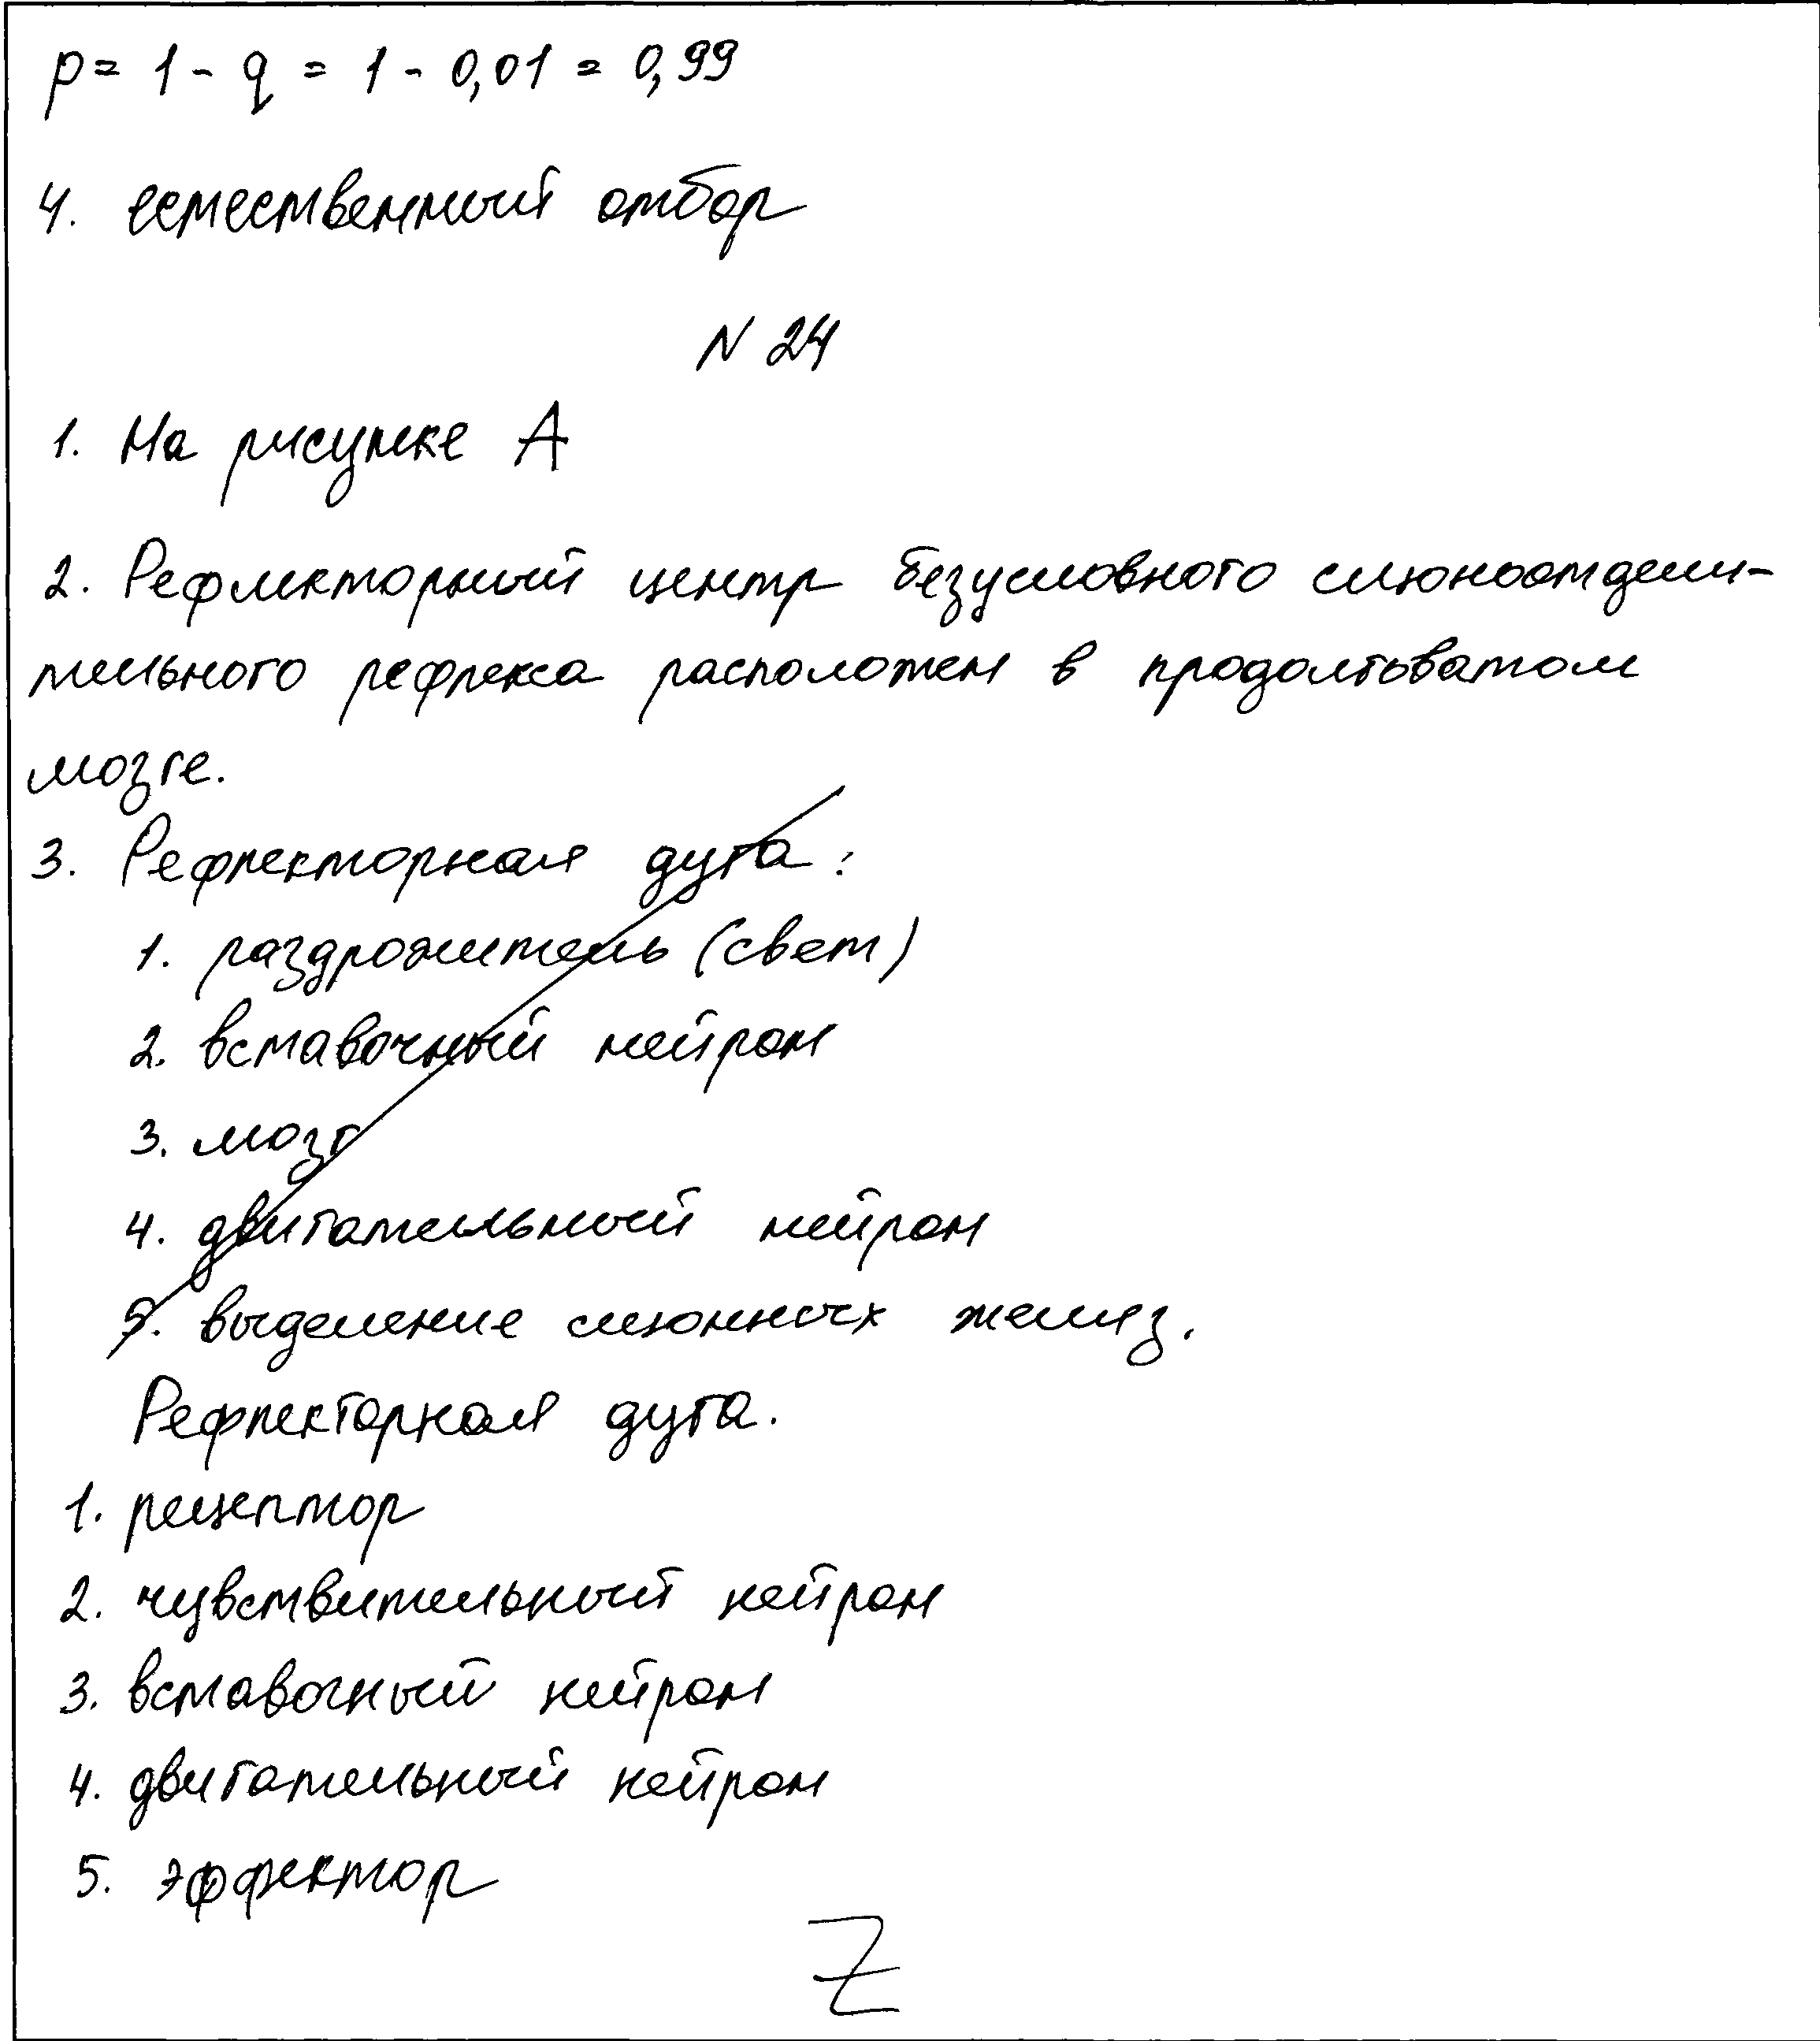 p = 1 - q = 1 - 0,01 = 0,99
4. естественный отбор
N 24
1. На рисунке А
2. Рефлекторный центр безусловного слюноотдели-
тельного рефлекса расположен в продолговатом
мозге.
3. Рефлекторная дуга:
1. раздрожитель (свет)
2. вставочный нейрон
3. мозг
4. двигательный нейрон
5. выделение слюнных желез.
Рефлекторная дуга.
1. рецептор
2. чувствительный нейрон
3. вставочный нейрон
4. двигательный нейрон
5. эффектор
Z